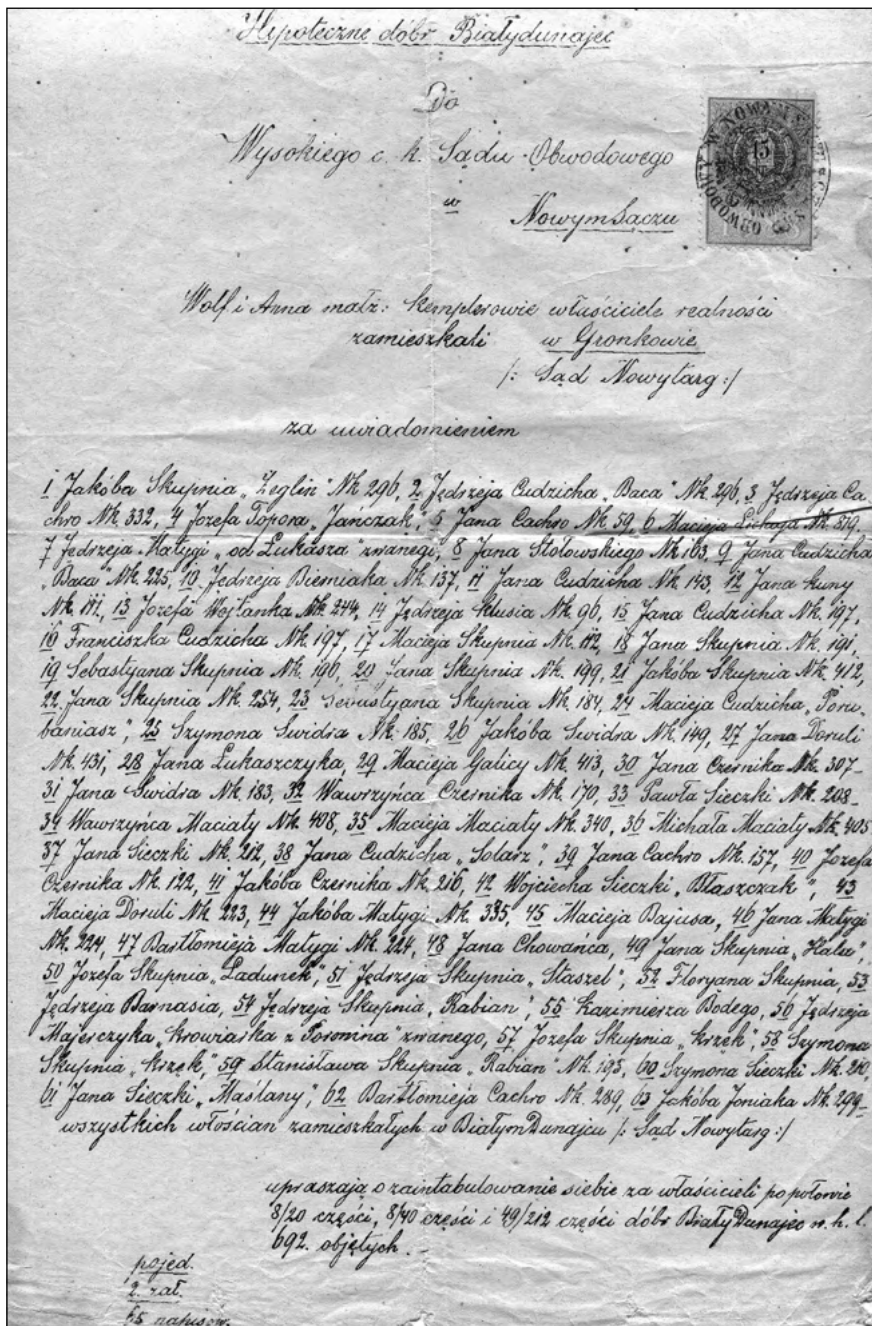 Hipoteczne dóbr Białydunajec
Do
Wysokiego c. k. Sądu Obwodowego
w
Nowym Sączu
15
OBWODOWY W NOWYM
Wolf i Anna małż: Kemplerowie właściciele realności
zamieszkali w Gronkowie
/: Sąd Nowytarg :/
za uwiadomieniem
1 Jakóba Skupnia „Zeglin" Nk 296, 2 Jędrzeja Cudzicha „Baca" Nk. 296, 3 Jędrzeja Ca-
chro Nk. 332, 4 Jozefa Topora „Jańczak", 5 Jana Cachro Nk. 59, 6 Macieja Lichaja Nk. 879,
7 Jędrzeja Matygi „od Łukasza" zwanego, 8 Jana Stołowskiego Nk 163, 9 Jana Cudzicha
„Baca" Nk. 225, 10 Jędrzeja Bieniaka Nk. 137, 11 Jana Cudzicha Nk. 143, 12 Jana Kuny
Nk. 111, 13 Jozefa Wojtanka Nk. 244, 14 Jędrzeja Klusia Nk. 96, 15 Jana Cudzicha Nk. 197,
16 Franciszka Cudzicha Nk. 197, 17 Macieja Skupnia Nk. 112, 18 Jana Skupnia Nk. 191,
19 Sebastyana Skupnia Nk. 196, 20 Jana Skupnia Nk. 199, 21 Jakóba Skupnia Nk. 412,
22 Jana Skupnia Nk. 254, 23 Sebastyana Skupnia Nk. 184, 24 Macieja Cudzicha „Poru-
baniasz", 25 Szymona Swidra Nk. 185, 26 Jakóba Swidra Nk. 149, 27 Jana Doruli
Nk. 431, 28 Jana Łukaszczyka, 29 Macieja Galicy Nk. 413, 30 Jana Czernika Nk. 307-
31 Jana Swidra Nk. 183, 32 Wawrzyńca Czernika Nk. 170, 33 Pawła Sieczki Nk. 208-
34 Wawrzyńca Maciaty Nk. 408, 35 Macieja Maciaty Nk. 340, 36 Michała Maciaty Nk. 405
37 Jana Sieczki Nk. 212, 38 Jana Cudzicha „Solarz", 39 Jana Cachro Nk. 157, 40 Jozefa
Czernika Nk. 122, 41 Jakóba Czernika Nk. 216, 42 Wojciecha Sieczki „Błaszczak", 43
Macieja Doruli Nk. 223, 44 Jakóba Matygi Nk. 335, 45 Macieja Bajusa, 46 Jana Matygi
Nk. 224, 47 Bartłomieja Matygi Nk. 224, 48 Jana Chowańca, 49 Jana Skupnia „Hala",
50 Jozefa Skupnia „Ladunek", 51 Jędrzeja Skupnia „Staszel", 52 Floryana Skupnia, 53
Jędrzeja Barnasia, 54 Jędrzeja Skupnia „Rabian", 55 Kazimierza Bodego, 56 Jędrzeja
Majerczyka „krowiarka z Poronina" zwanego, 57 Jozefa Skupnia „krzek", 58 Szymona
Skupnia „krzek", 59 Stanisława Skupnia „Rabian" Nk. 195, 60 Szymona Sieczki Nk. 210,
61 Jana Sieczki „Maślany", 62 Bartłomieja Cachro Nk. 289, 63 Jakóba Joniaka Nk. 299-
wszystkich włościan zamieszkałych w Białym Dunajcu /: Sąd Nowytarg :/
upraszają o zaintabulowanie siebie za właścicieli po połowie
8/20 części, 8/40 części i 49/212 części dóbr Biały Dunajec w. h. l.
692. objętych.
pojed.
2. zał.
65 napisów.